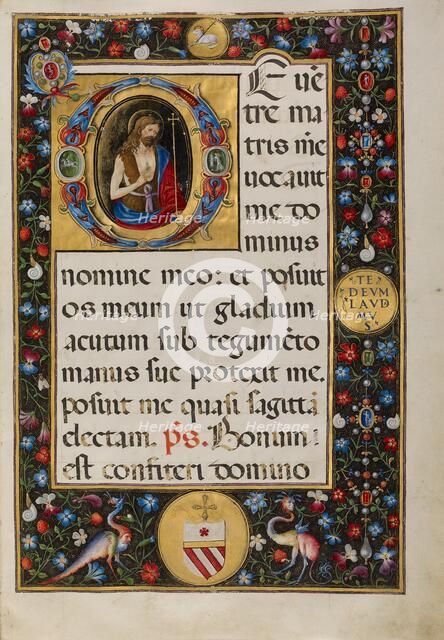 DE uẽ
tre ma
tris mẽ
uocauit
me do
minus
nomine meo: et posuit
os meum ut gladium
acutum sub tegumẽto
manus sue protexit me.
posuit me quasi sagittã
electam. ps. Bonum
est confiteri domino
TE
DEVM
LAVD
AMV
S
Heritage